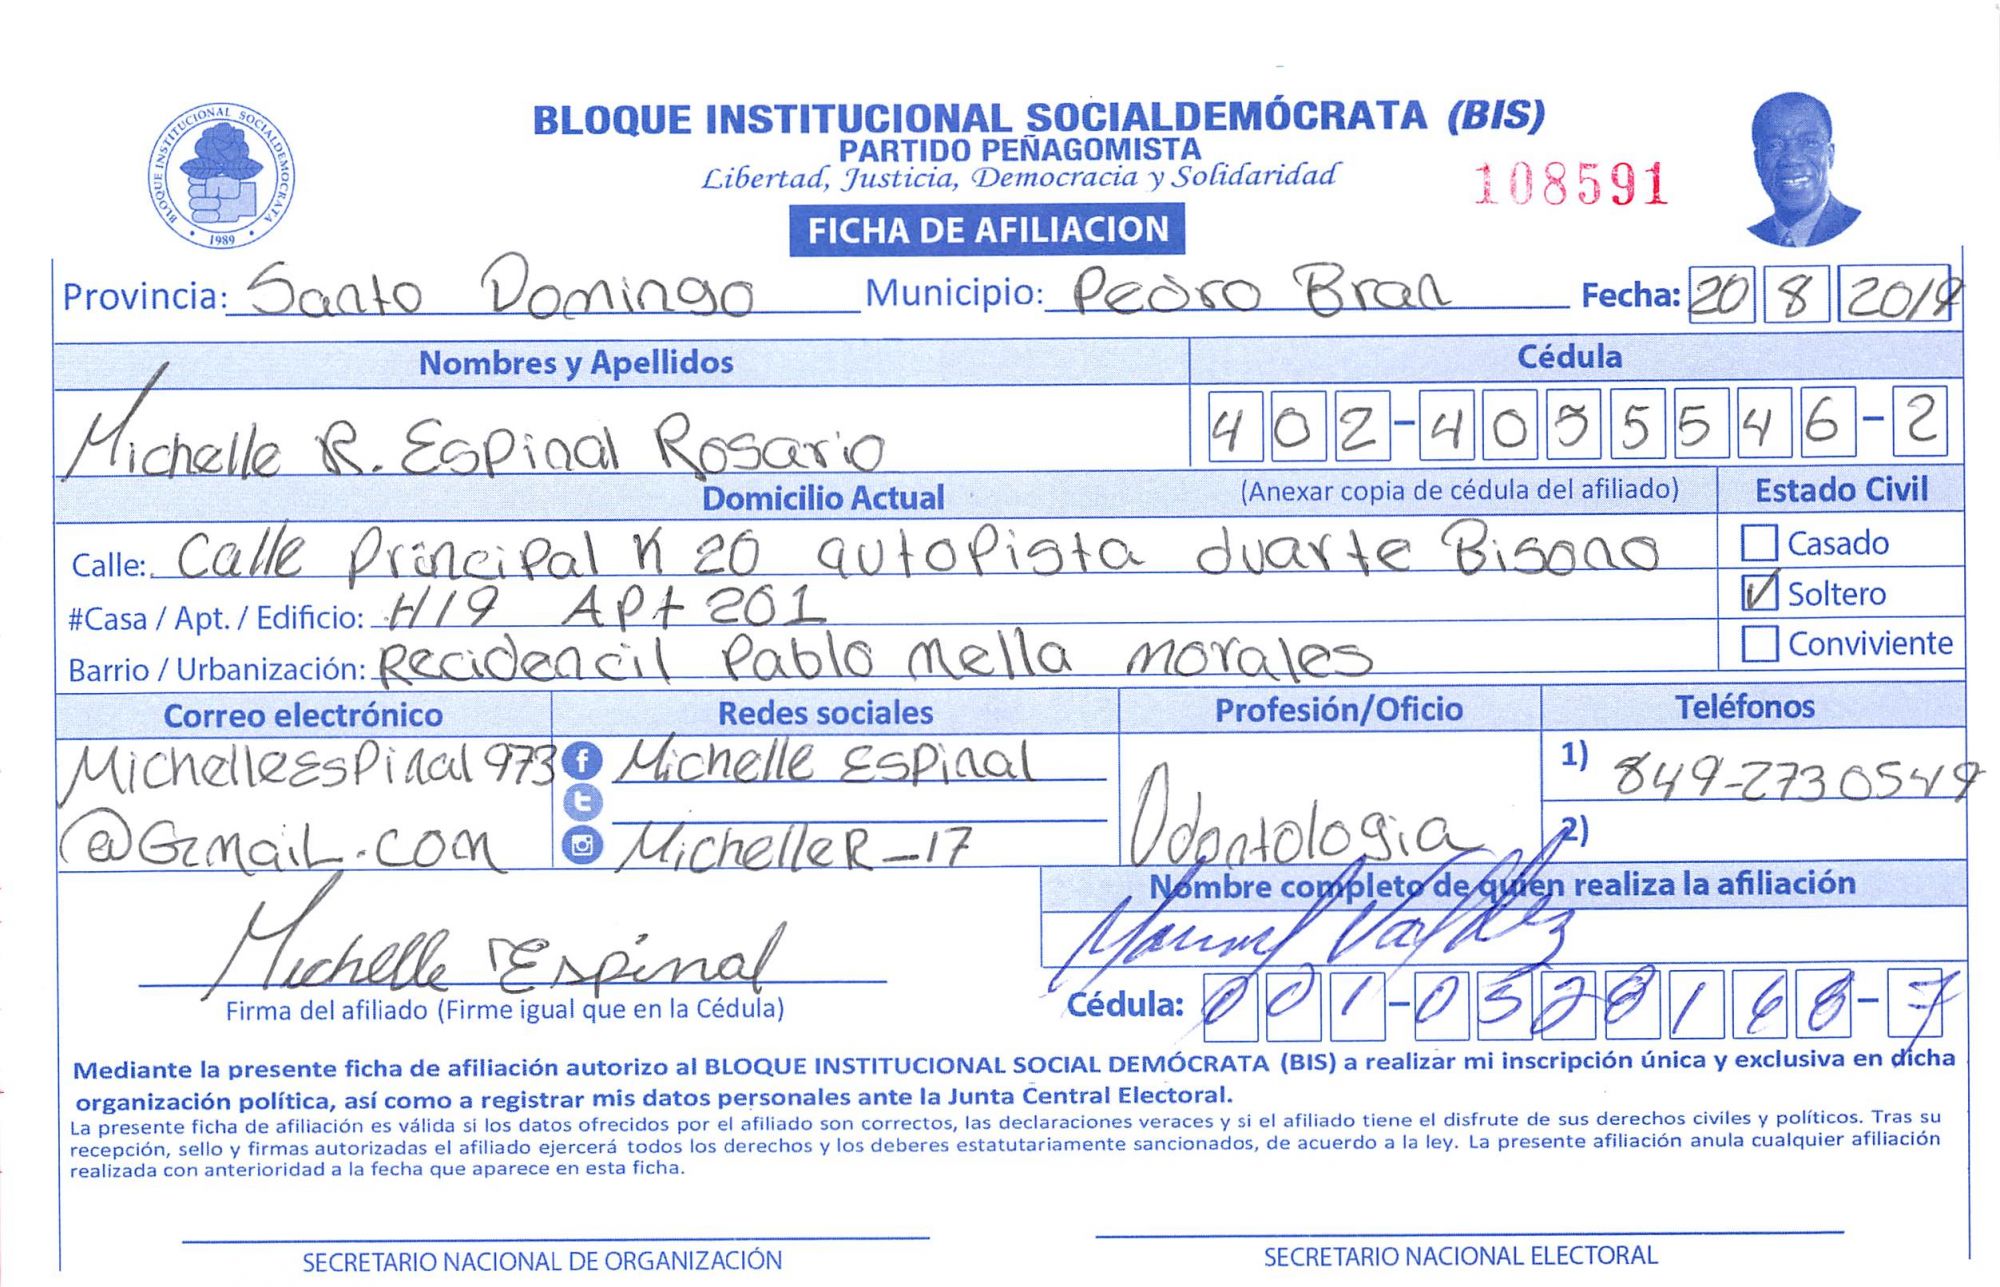 BLOQUE INSTITUCIONAL SOCIALDEMÓCRATA (BIS)
PARTIDO PEÑAGOMISTA
Libertad, Justicia, Democracia y Solidaridad
108591
BLOQUE INSTITUCIONAL SOCIALDEMOCRATA
1989
FICHA DE AFILIACION
Provincia: Santo Domingo Municipio: Pedro Bran Fecha: 20 8 2019
Nombres y Apellidos Cédula
Michelle R. Espinal Rosario 402-4055546-2
Domicilio Actual (Anexar copia de cédula del afiliado) Estado Civil
Calle: Calle Principal K 20 autopista duarte Bisono Casado
#Casa / Apt. / Edificio: H19 APt 201 Soltero
Barrio / Urbanización: Recidencil Pablo Mella Morales Conviviente
Correo electrónico Redes sociales Profesión/Oficio Teléfonos
MichelleEspinal973 Michelle Espinal 1) 849-2730549
@Gmail.com MichelleR_17 Odontologia 2)
Nombre completo de quien realiza la afiliación
Michelle Espinal Manuel Valdez
Firma del afiliado (Firme igual que en la Cédula) Cédula: 001-0528168-7
Mediante la presente ficha de afiliación autorizo al BLOQUE INSTITUCIONAL SOCIAL DEMÓCRATA (BIS) a realizar mi inscripción única y exclusiva en dicha
organización política, así como a registrar mis datos personales ante la Junta Central Electoral.
La presente ficha de afiliación es válida si los datos ofrecidos por el afiliado son correctos, las declaraciones veraces y si el afiliado tiene el disfrute de sus derechos civiles y políticos. Tras su
recepción, sello y firmas autorizadas el afiliado ejercerá todos los derechos y los deberes estatutariamente sancionados, de acuerdo a la ley. La presente afiliación anula cualquier afiliación
realizada con anterioridad a la fecha que aparece en esta ficha.
SECRETARIO NACIONAL DE ORGANIZACIÓN SECRETARIO NACIONAL ELECTORAL